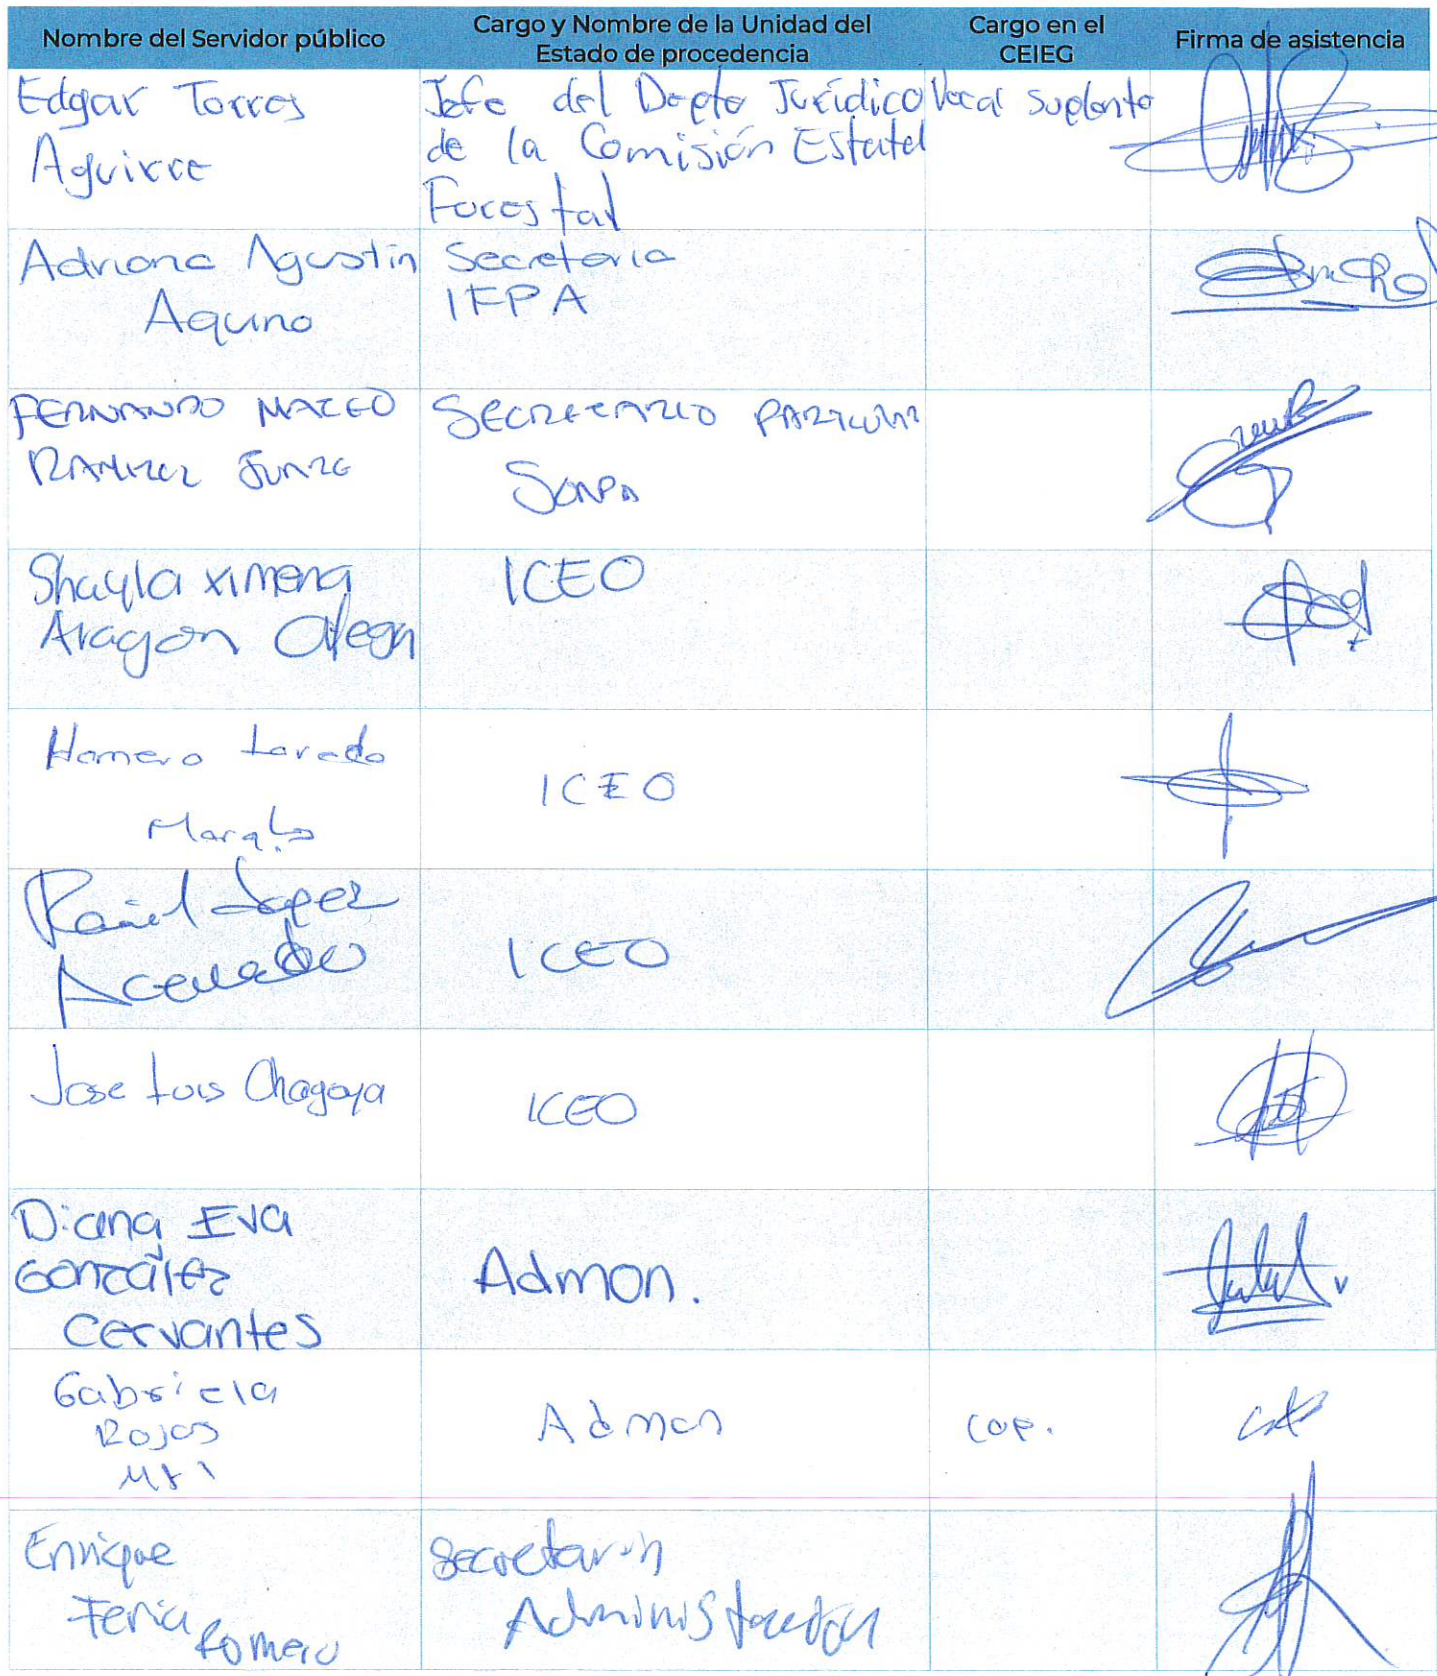 Nombre del Servidor público
Cargo y Nombre de la Unidad del
Estado de procedencia
Cargo en el
CEIEG
Firma de asistencia
Edgar Torres
Aguirre
Jefe del Depto Jurídico
de la Comisión Estatal
Forestal
Vocal Suplente
Adriana Agustin
Aquino
Secretaria
IFPA
FERNANDO MATEO
RAMIREZ
SECRETARIO PARTICULAR
Shayla Ximena
Aragon
ICEO
Homero
ICEO
López
Acevedo
ICEO
Jose Luis Chagoya
ICEO
Diana Eva
González
Cervantes
Admon.
Gabriela
Rojas
Admon
Enrique
Feria
Romero